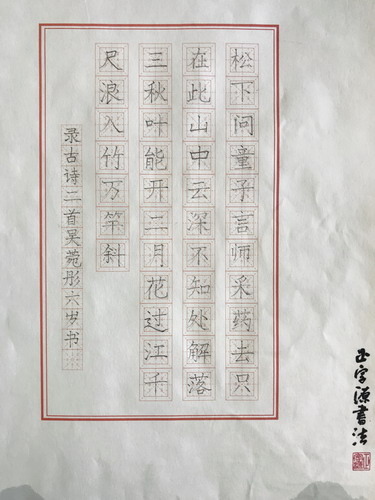 松下问童子言师采药去只
在此山中云深不知处解落
三秋叶能开二月花过江千
尺浪入竹万竿斜
录古诗二首吴菀彤六岁书
正字源書法